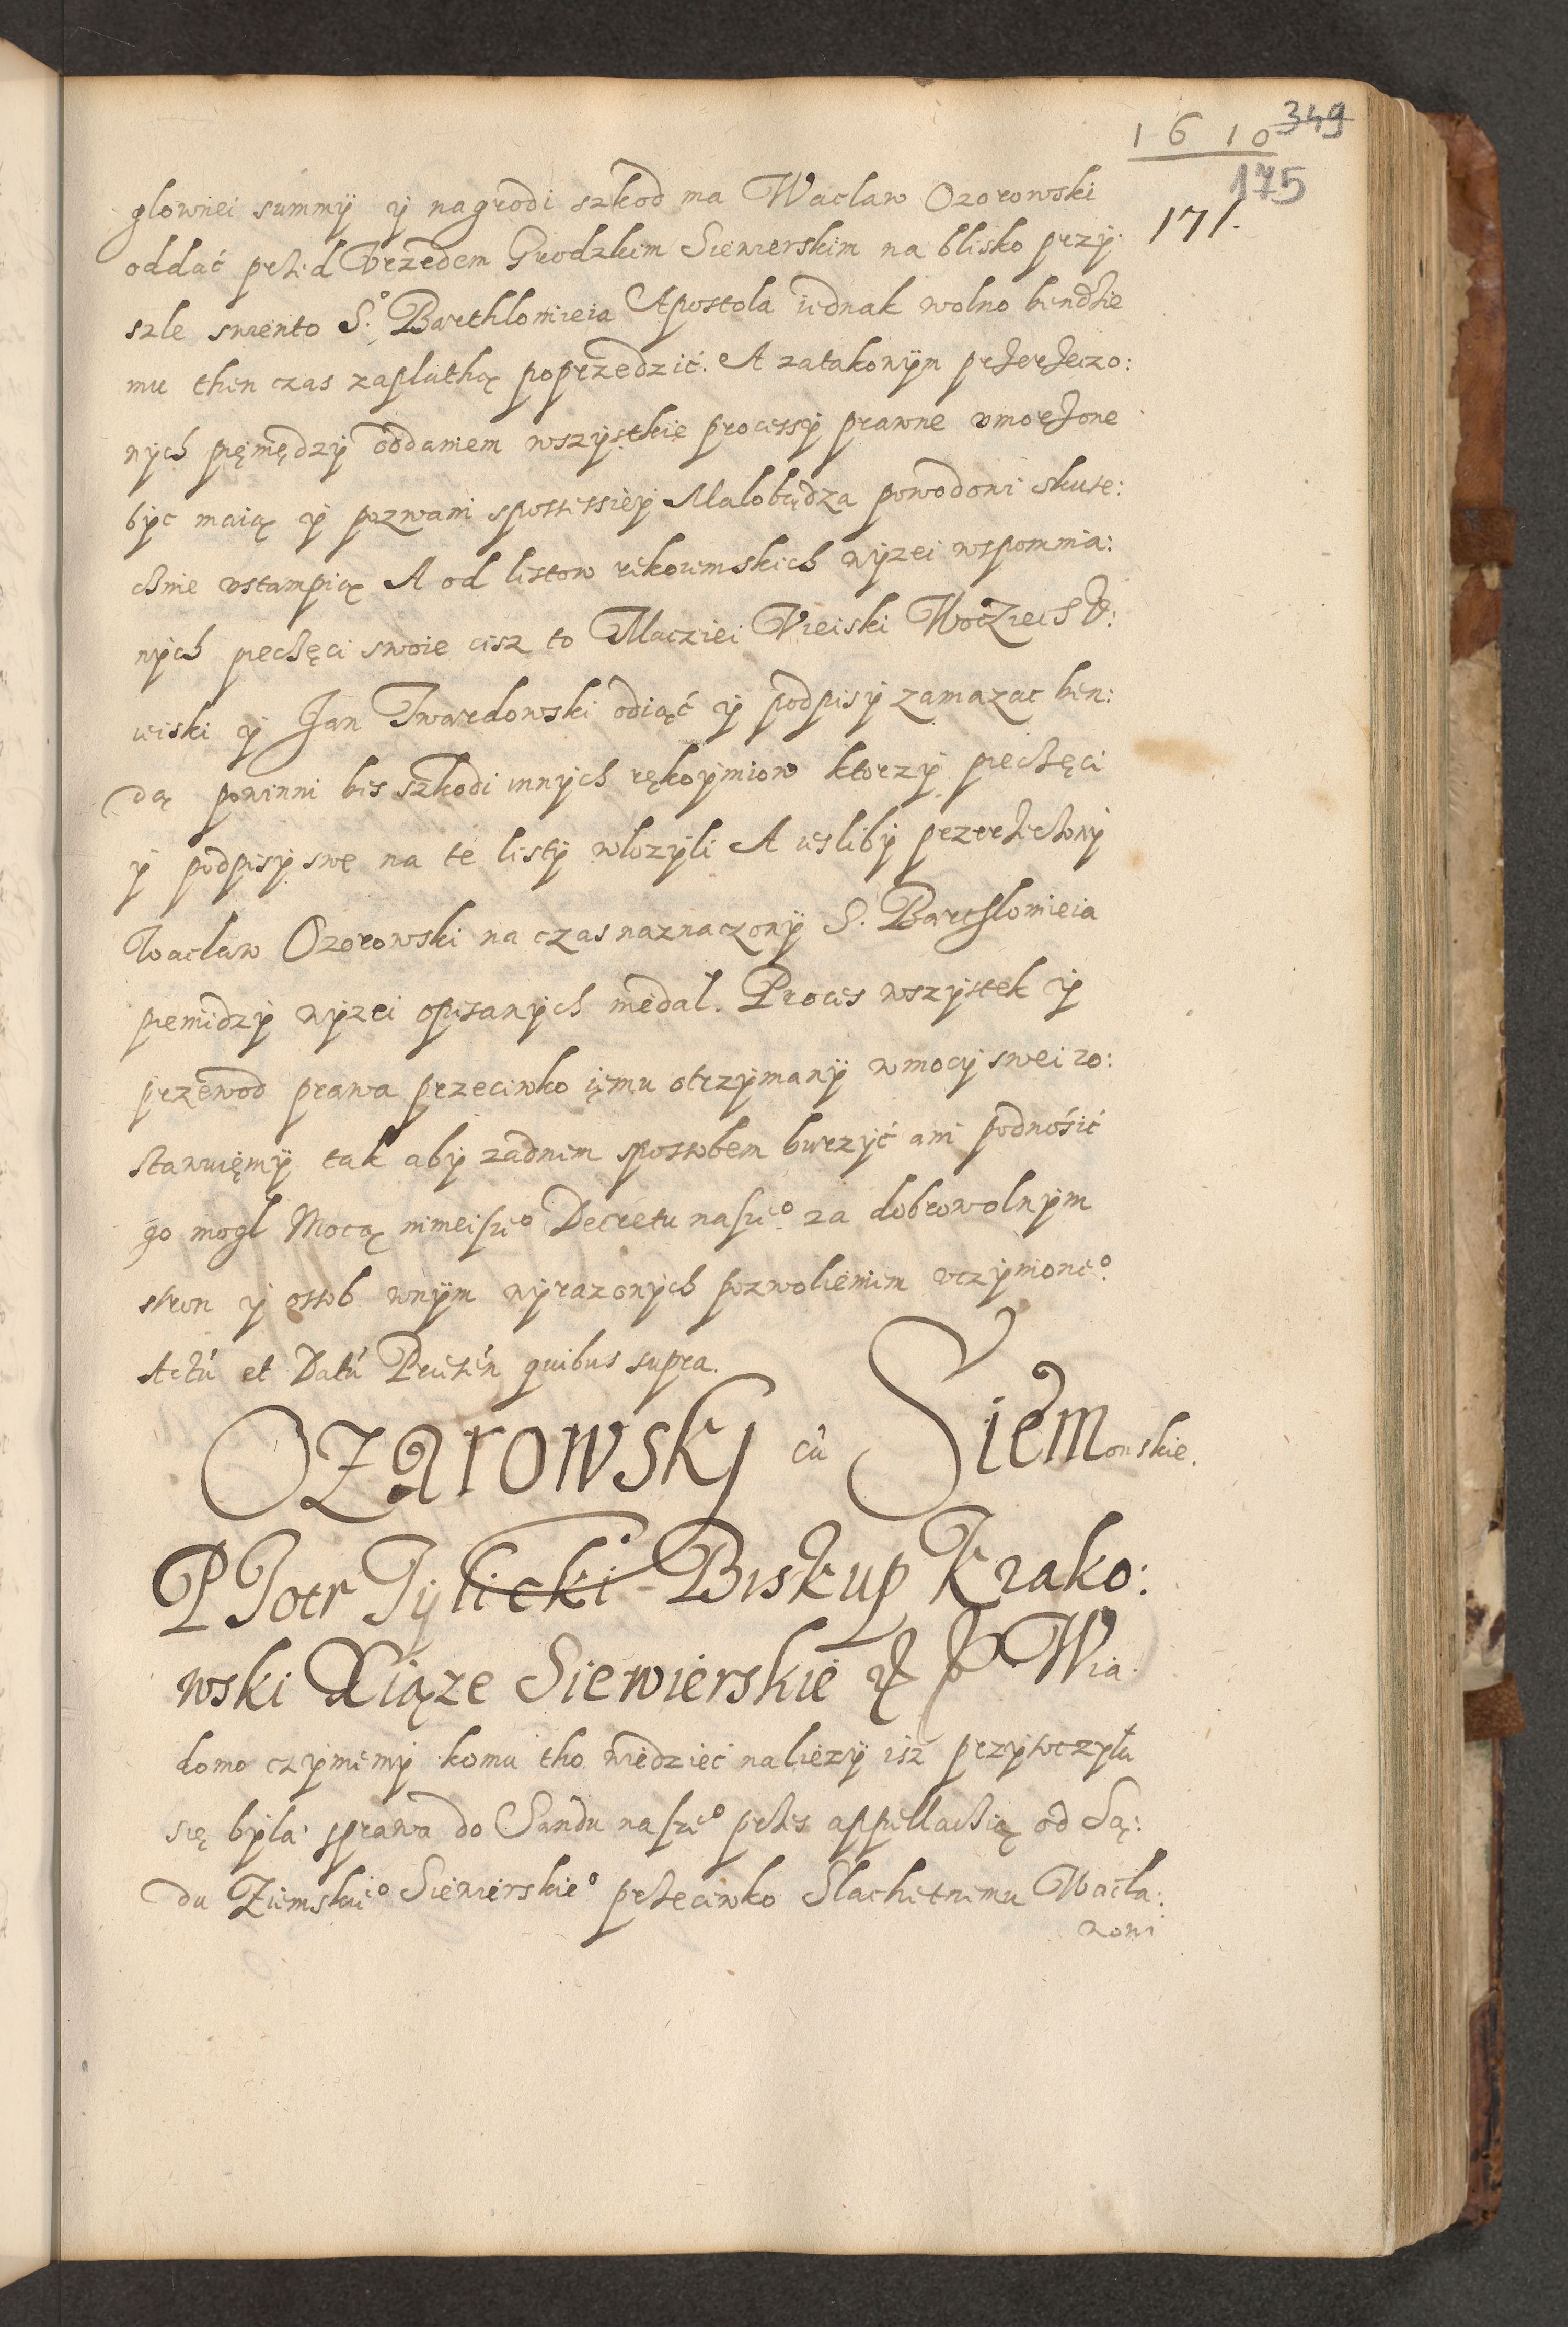 1610 349
175
171.
glownei summÿ ÿ nagrodi szkod ma Waclaw Ozorowski
oddać przed Vrzedem Grodzkim Siewierskim na blisko przÿ:
szle swiento S.° Barthlomieia Apostola iednak wolno bendzie
mu then czas zaplathą poprzedzić. A zatakowÿm przerzeczo:
nÿch pięniędzÿ oddaniem wszÿstkie processÿ prawne vmorzone
bÿc maią ÿ pozwani spossessieÿ Malobędza powodowi skute:
cznie vstampią A od listow rekoiemskich wÿzei wspomnia:
nÿch pieczęci swoie cisz to Macziei Vieiski Wocziech V:
ieiski ÿ Jan Twardowski odiąć ÿ podpisÿ zamazac ben:
dą powinni bes szkodi innÿch rękoÿmiow ktorzÿ pieczęci
ÿ podpisÿ swe na te listÿ wlozÿli A iesliby przerzeczonÿ
Waclaw Ozorowski na czas naznaczonÿ S. Barthlomieia
pieniedzÿ wÿzei opisanÿch niedal. Proces wszÿstek ÿ
przewod prawa przeciwko iemu otrzÿmanÿ w mocÿ swei zo:
stawuięmÿ tak abÿ zadnim sposobem burzÿć ani podnośić
go mogl Mocą ninieisze° Decretu nasze° za dobrowolnÿm
stron ÿ ossob wnÿm wÿrazonÿch pozwolieniem vczÿnione°.
Actú et Datú Presén quibus supra.
Ozarowskj cū Siemonskie.
PJotr Tÿlicki Biskup Krako:
wski Xiąze Siewierskie Wia:
domo czÿniemÿ komu tho wiedzieć naliezÿ isz przÿtoczÿła
się bÿla sprawa do Sandu nasze° przes appellaczią od Są:
du Ziemskie° Siewierskie° przeciwko Slachetnemu Wacła:
wowi